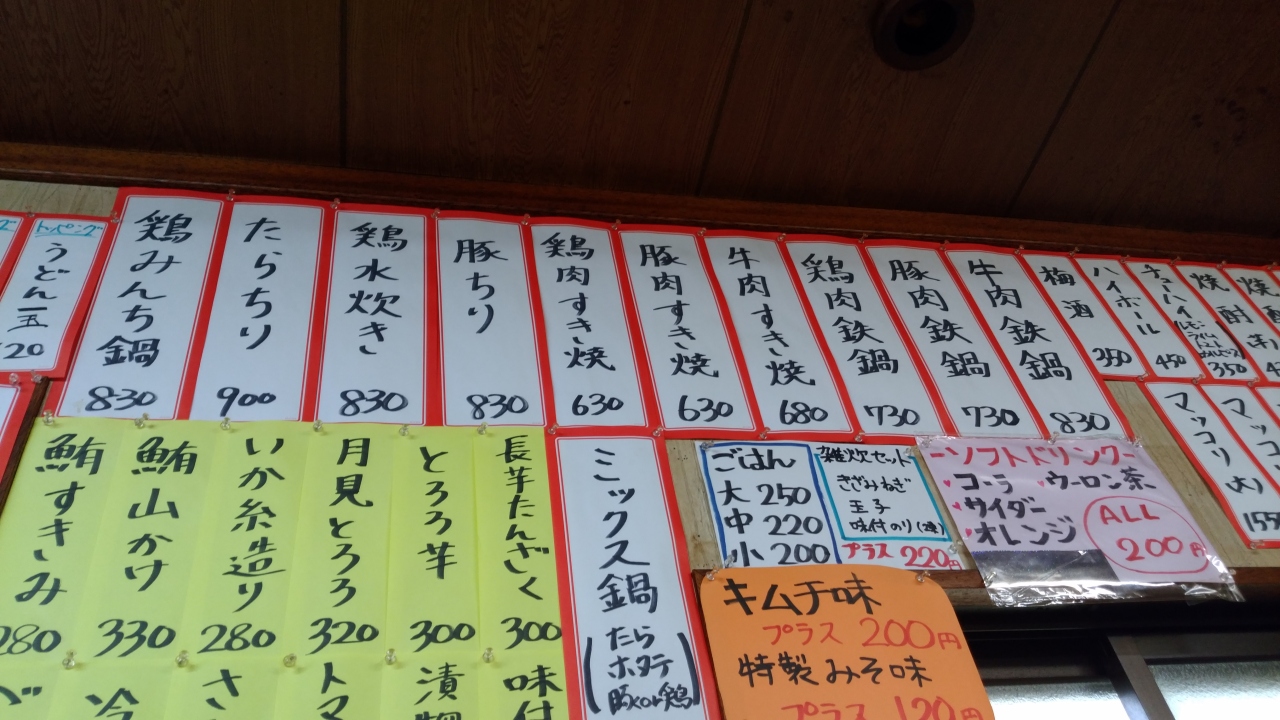 トッピング
うどん一玉
鶏みんち鍋
830
たらちり
900
鶏水炊き
830
豚ちり
830
鶏肉すき焼
630
豚肉すき焼
630
牛肉すき焼
680
鶏肉鉄鍋
730
豚肉鉄鍋
730
牛肉鉄鍋
830
梅酒
ハイボール
350
チューハイ
450
焼酎
350
マッコリ
マッコリ
大)
鮪すきみ
280
鮪山かけ
330
いか糸造り
280
月見とろろ
320
とろろ芋
300
長芋たんざく
300
ミックス鍋
(たら
ホタテ
豚又は鶏)
ごはん
大 250
中 220
小 200
雑炊セット
きざみねぎ
玉子
味付のり(2束)
プラス 220円
-ソフトドリンク-
コーラ
ウーロン茶
サイダー
オレンジ
ALL
200円
キムチ味
プラス 200円
特製みそ味
プラス 120円